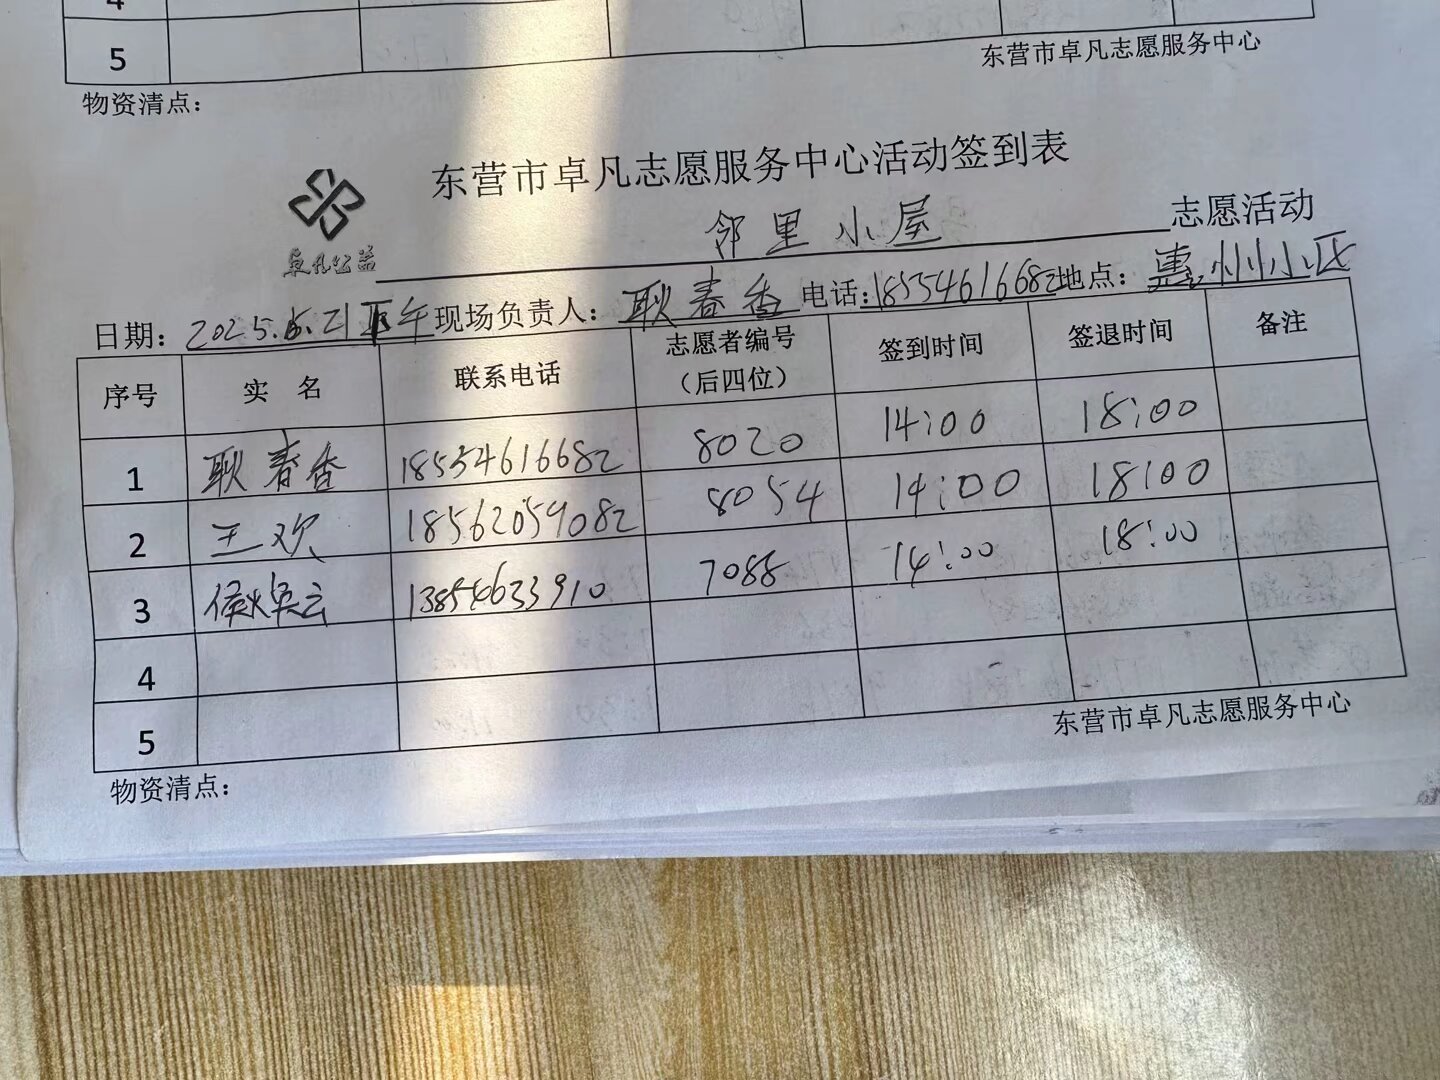 4
5
东营市卓凡志愿服务中心
物资清点：
东营市卓凡志愿服务中心活动签到表
卓凡公益
邻里小屋 志愿活动
日期：2025.6.21下午 现场负责人：耿春香 电话：18554616682 地点：惠州小区
序号 实 名 联系电话 志愿者编号（后四位） 签到时间 签退时间 备注
1 耿春香 18554616682 8020 14:00 18:00
2 王欢 18562059082 8054 14:00 18:00
3 侯焕云 13854633910 7088 14:00 18:00
4
5
东营市卓凡志愿服务中心
物资清点：